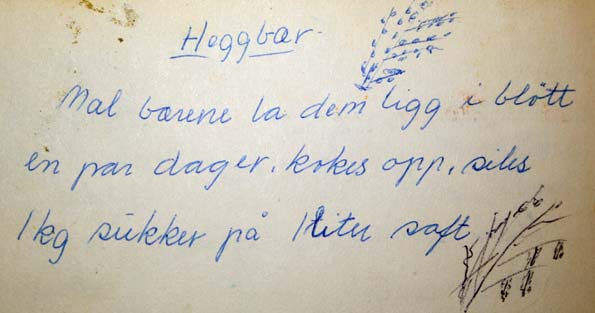 Heggbær
Mal bærene la dem ligg i bløtt
en par dager. kokes opp, siles
1 kg sukker på 1 liter saft